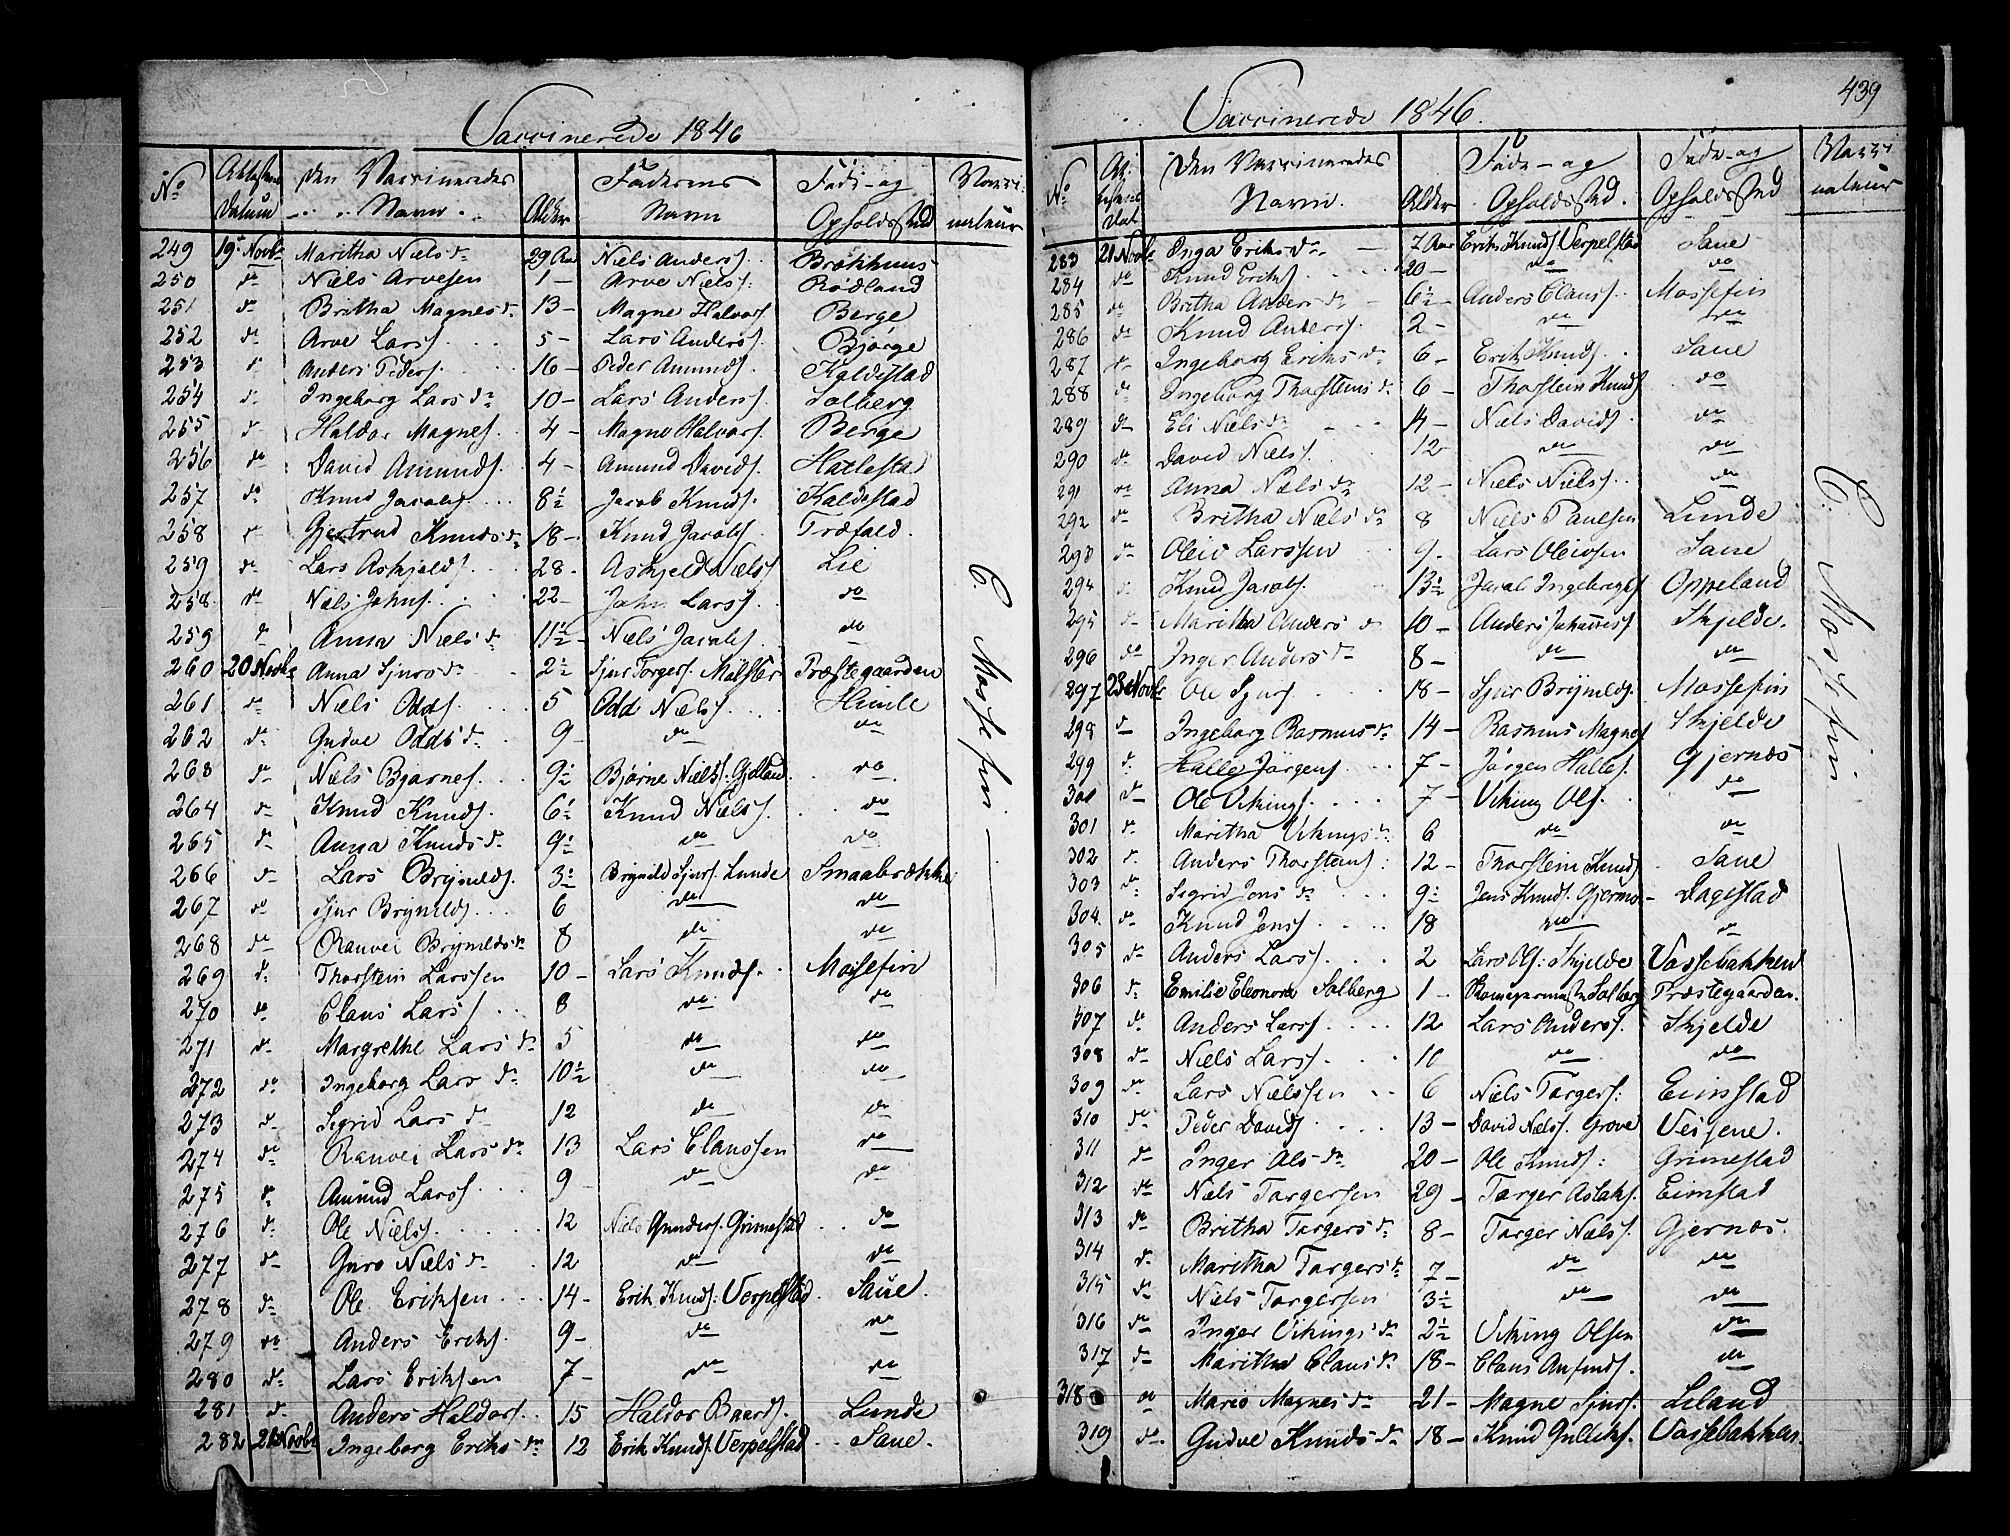 Vaccinerede 1846
No Attestens Datum Den Vaccineredes Navn Alder Faderens Navn Føde- og Opholdssted Vaccinateur
249 19de Novbr Maritha Nielsdr 29 Aar Niels Anderss. Brækhuus
250 do Niels Arvesen 1 - Arve Nielss: Rødland
251 do Britha Magnesdr 13 - Magne Halvors. Berge
252 do Arve Larss. 5 - Lars Anderss. Bjørge
253 do Anders Peders. 16 - Peder Amunds. Kaldestad
254 do Ingeborg Larsdr 10 - Lars Anderss. Solberg
255 do Haldor Magness. 4 - Magne Halvors. Berge
256 do David Amunds. 4 - Amund Davids. Hatlestad
257 do Knud Jacobs. 8½ Jacob Knuds. Kaldestad
258 do Gjertrud Knudsdr 18 - Knud Jacobs. Træfald.
259 do Lars Askjelds. 28 - Askjeld Niels. Lie
258 do Niels Johns. 22 - John Larss. do
259 do Anna Nielsdr 11½ - Niels Jacobs. do
260 20 Novbr Anna Sjursdr 2½ Sjur Torgers. Mølster Præstegaarden
261 do Niels Odds. 5 Odd Niels. Himle
262 do Gudve Oddsdr 9 - do do
263 do Niels Bjørnes. 9½ Bjørne Nielss. Gjelland do
264 do Knud Knuds. 6½ Knud Nielss. do
265 do Anna Knudsdr 9½ do do
266 do Lars Brynilds. 3½ Brynild Sjurs. Lunde Smaabrække
267 do Sjur Brynilds. 6 do do
268 do Ranvei Bryneldsdr 8 do do
269 do Thorstein Larssen 10 - Lars Knuds. Mossefin
270 do Claus Larss. 8 do do
271 do Margrethe Larsdr 5 do do
272 do Ingeborg Larsdr 10½ do do
273 do Sigrid Larsdr 12 do do
274 do Ranvei Larsdr 13 Lars Claussen do
275 do Amund Larss. 9 - do do
276 do Ole Nielss. 12 Niels Gunders. Grimestad do
277 do Guro Nielsdr 12 do do
278 do Ole Eriksen 14 - Erik Knuds: Verpelstad Saue.
279 do Anders Eriks. 9 - do do
280 do Lars Eriksen 7 - do do
281 do Anders Haldors. 15 Haldor Baards. Lunde
282 21 Novbr Ingeborg Eriksdr 12 Erik Knuds. Verpelstad Saue.
C. Mossefin
439
Vaccinerede 1846.
No Den Vaccineredes Navn. Alder Føde- og Opholdssted. Føde- og Opholdssted Vacci nateur
283 21 Novbr Inga Eriksdr 7 Aar Erik Knuds. Verpelstad Saue
284 do Knud Eriks. 20 - do do
285 do Britha Andersdr 6½ - Anders Clauss. Mossefin
286 do Knud Anderss. 2 - do do
287 do Ingeborg Eriksdr 6 - Erik Knuds. Saue
288 do Ingeborg Thorsteinsdr 6 - Thorstein Knuds. do
289 do Eli Nielsdr 4 - Niels Davids. do
290 do David Nielss. 12 do do
291 do Anna Nielsdr 12 - Niels Nielss. do
292 do Britha Nielsdr 8 Niels Paulsen Lunde
293 do Oleiv Larssen 9 - Lars Oleivsen Saue
294 do Knud Jacobs. 13½ Jacob Ingebrigts. Oppeland
295 do Maritha Andersdr 10 - Anders Johanness. Skjelde.
296 do Inger Andersdr 8 - do do
297 23de Novbr Ole Sjurs. 18 - Sjur Brynilds. Mossefin
298 do Ingeborg Rasmusdr 14 - Rasmus Magnes. Skjelde
299 do Halle Jörgens. 7 - Jörgen Halles. Gjernes
300 do Ole Vikings. 7 - Viking Ols. do
301 do Maritha Vikingsdr 6 do do
302 do Anders Thorsteins: 12 - Thorstein Knuds. Saue
303 do Sigrid Jensdr 9½ Jens Knuds. Gjermo Dagestad
304 do Knud Jens. 18 do do
305 do Anders Larss. 2 Lars Ols: Skjelde Vossebakken
306 do Emilie Eleonora Solberg 1 - Solberg Præstegaarden.
307 do Anders Larss. 12 Lars Anderss. Skjelde
308 do Niels Larss. 10 do do
309 do Lars Nielssen 6 Niels Torgers: Eimstad
310 do Peder Davids. 13 - David Nielss. Grove Veisene.
311 do Inger Olsdr 20 - Ole Knuds: Grimestad
312 do Niels Torgersen 29 - Torger Aslaks. Eimstad
313 do Britha Torgersdr 8 - Torger Nielss. Gjernes.
314 do Maritha Torgersdr 7 - do do
315 do Niels Torgersen 3½ do do
316 do Inger Vikingsdr 2½ Viking Olsen do
317 do Maritha Clausdr 18 - Claus Anfinds. do
318 do Mario Magnesdr 21 - Magne Sjurs. Leland
319 do Gudve Knudsdr 18 - Knud Gulleiks. Vossebakken.
C. Mossefin